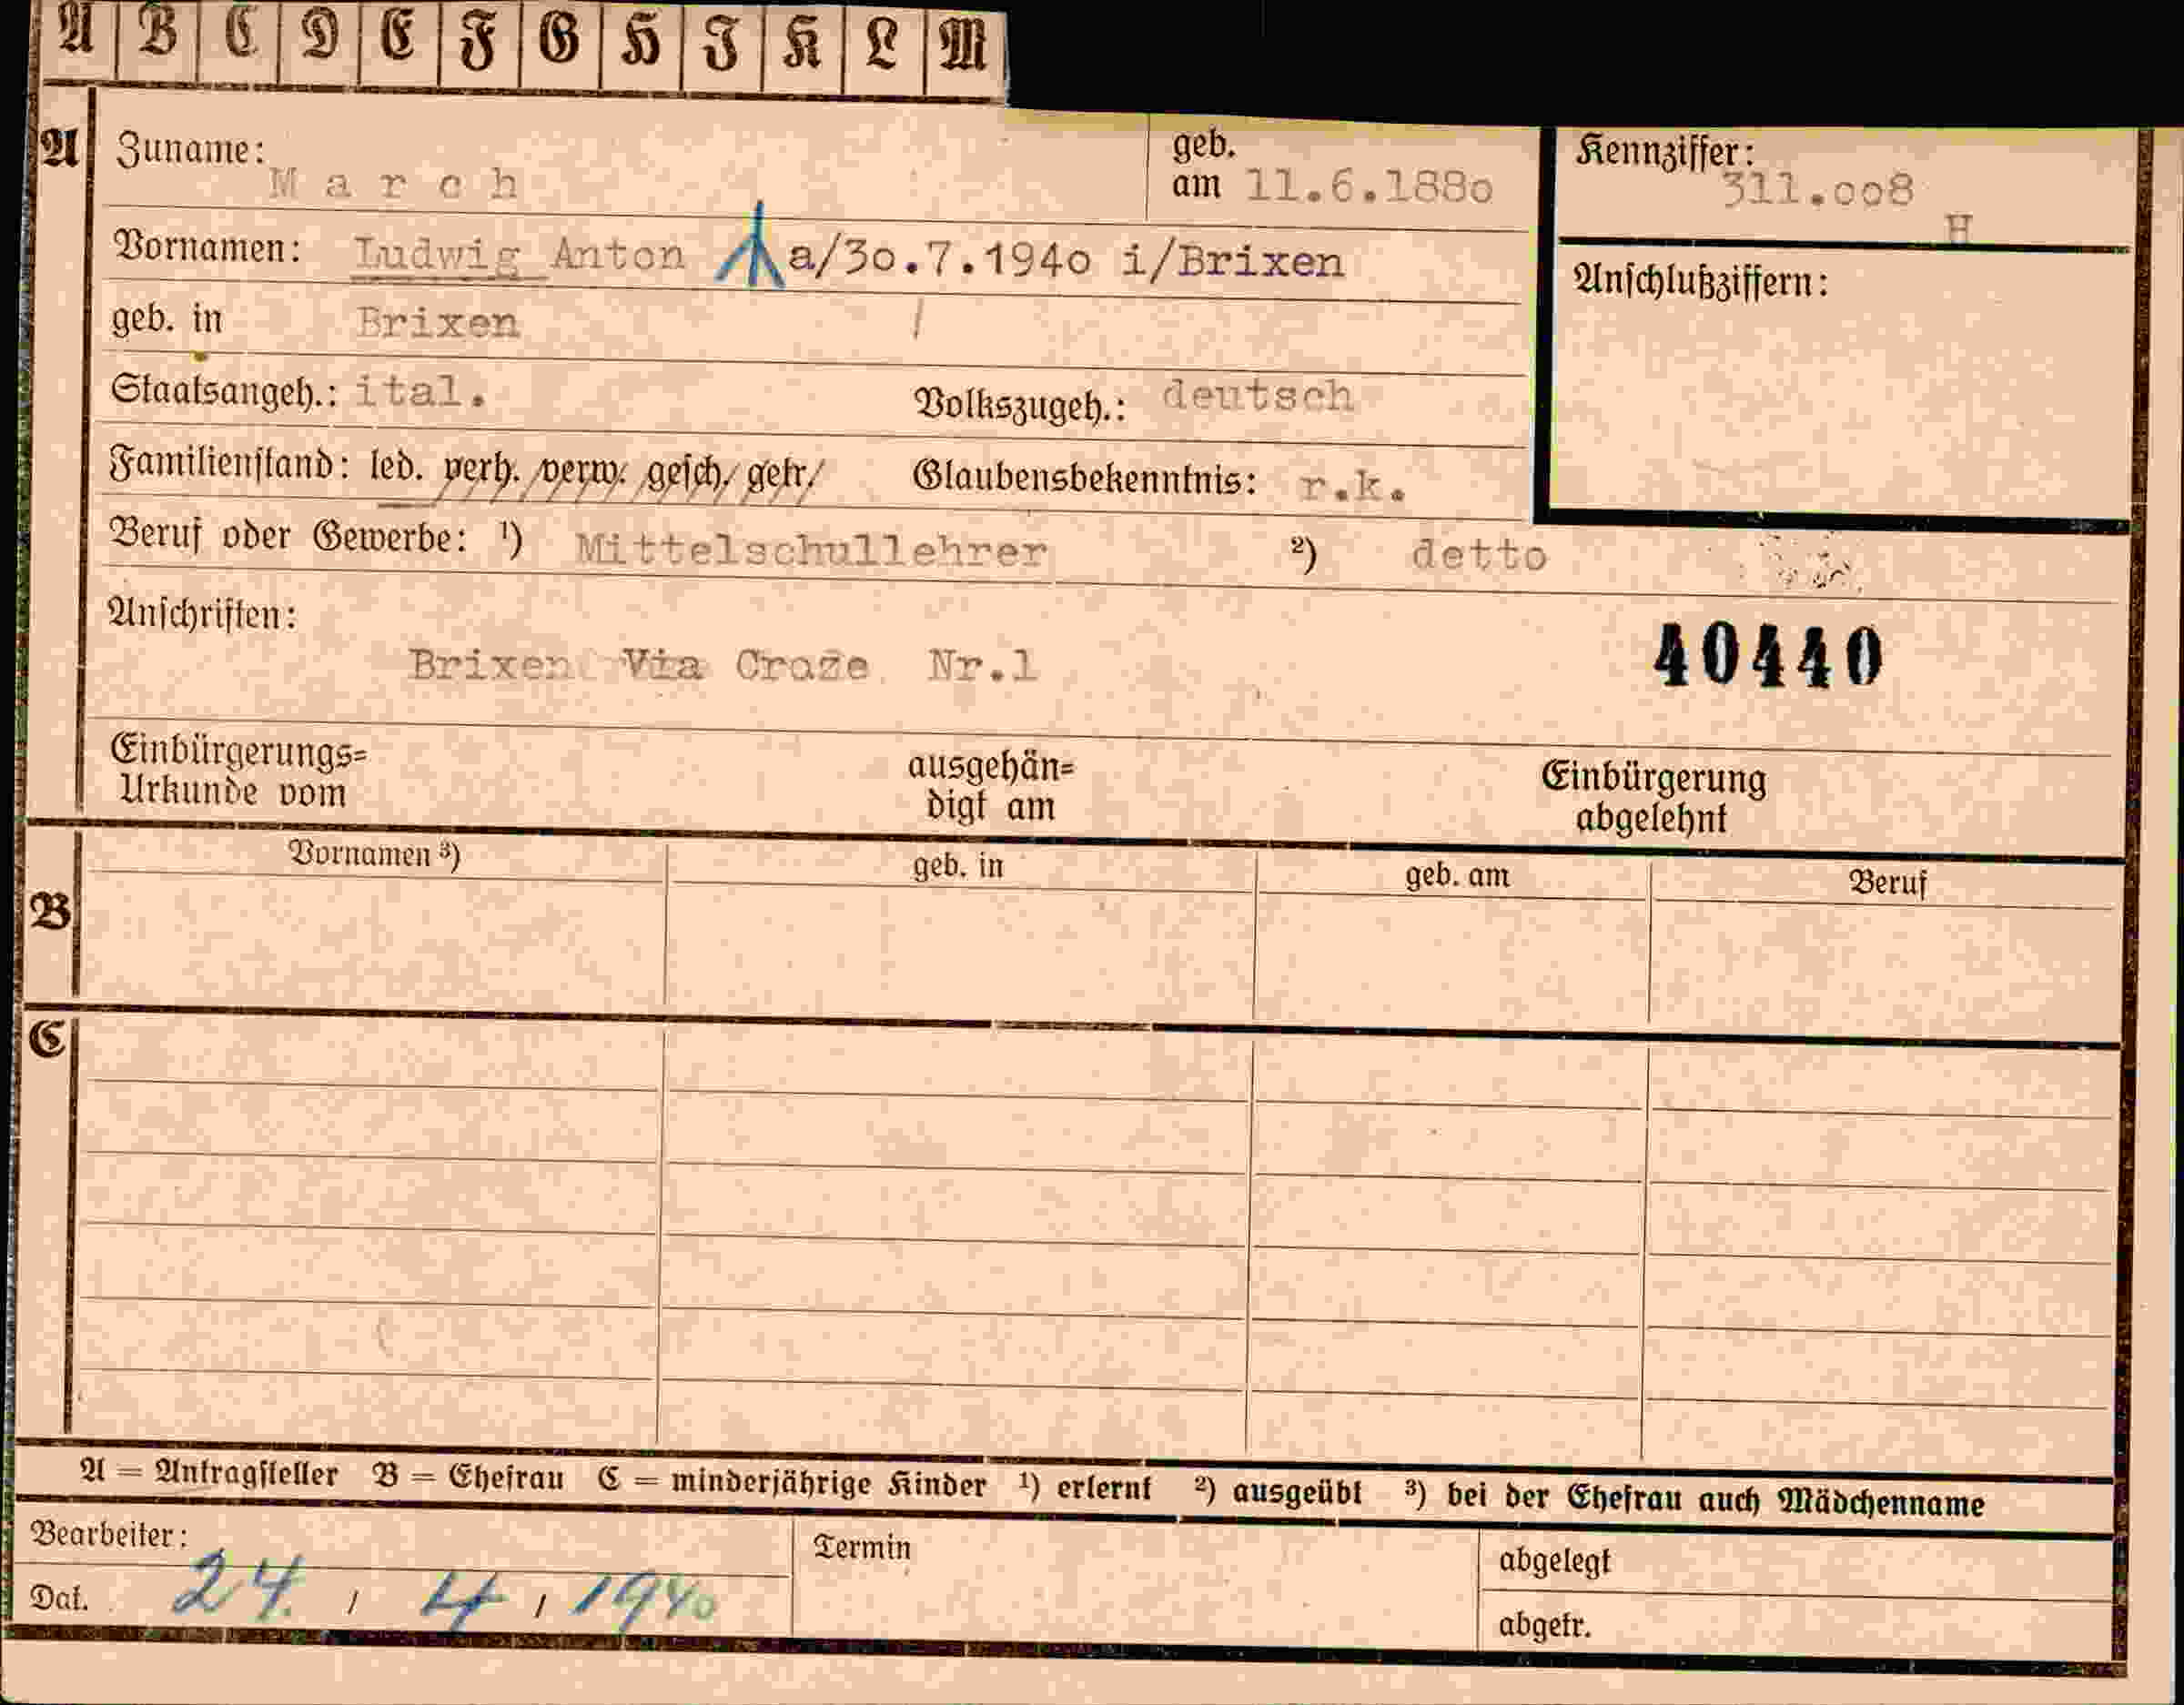 A B C D E F G H I K L M
A Zuname: March geb. am 11.6.1880 Kennziffer: 311.008 H
Vornamen: Ludwig Anton a/30.7.1940 i/Brixen
Anschlußziffern:
geb. in Brixen
Staatsangeh.: ital. Volkszugeh.: deutsch
Familienstand: led. verh. verw. gesch. getr. Glaubensbekenntnis: r.k.
Beruf oder Gewerbe: ¹) Mittelschullehrer ²) detto
Anschriften:
Brixen Via Croze Nr.1 40440
Einbürgerungs= Urkunde vom ausgehän= digt am Einbürgerung abgelehnt
B Vornamen ³) geb. in geb. am Beruf
C
A = Antragsteller B = Ehefrau C = minderjährige Kinder ¹) erlernt ²) ausgeübt ³) bei der Ehefrau auch Mädchenname
Bearbeiter: Termin abgelegt
Dat. 24. / 4 / 1940 abgetr.